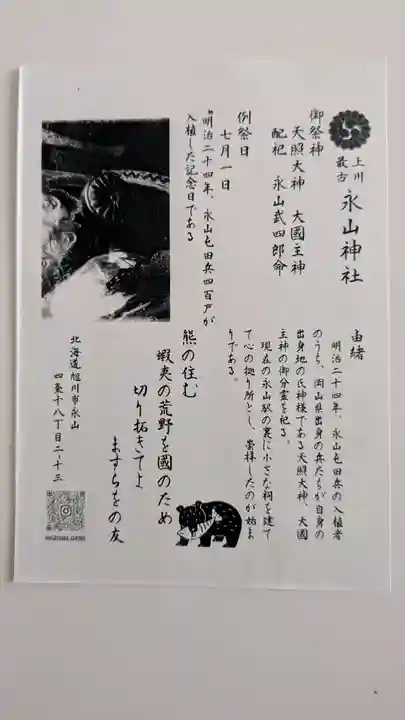 上川
最古
永山神社
御祭神
天照大神 大國主神
配祀 永山武四郎命
例祭日
七月一日
*明治二十四年、永山屯田兵四百戸が
入植した記念日である
由緒
明治二十四年、永山屯田兵の入植者
のうち、岡山県出身の兵たちが自身の
出身地の氏神様である天照大神、大國
主神の御分霊を祀る。
現在の永山駅の裏に小さな祠を建て
て心の拠り所とし、崇拝したのが始ま
りである。
熊の住む
蝦夷の荒野を國のため
切り拓きてよ
ますらをの友
北海道旭川市永山
四条十八丁目二ー十三